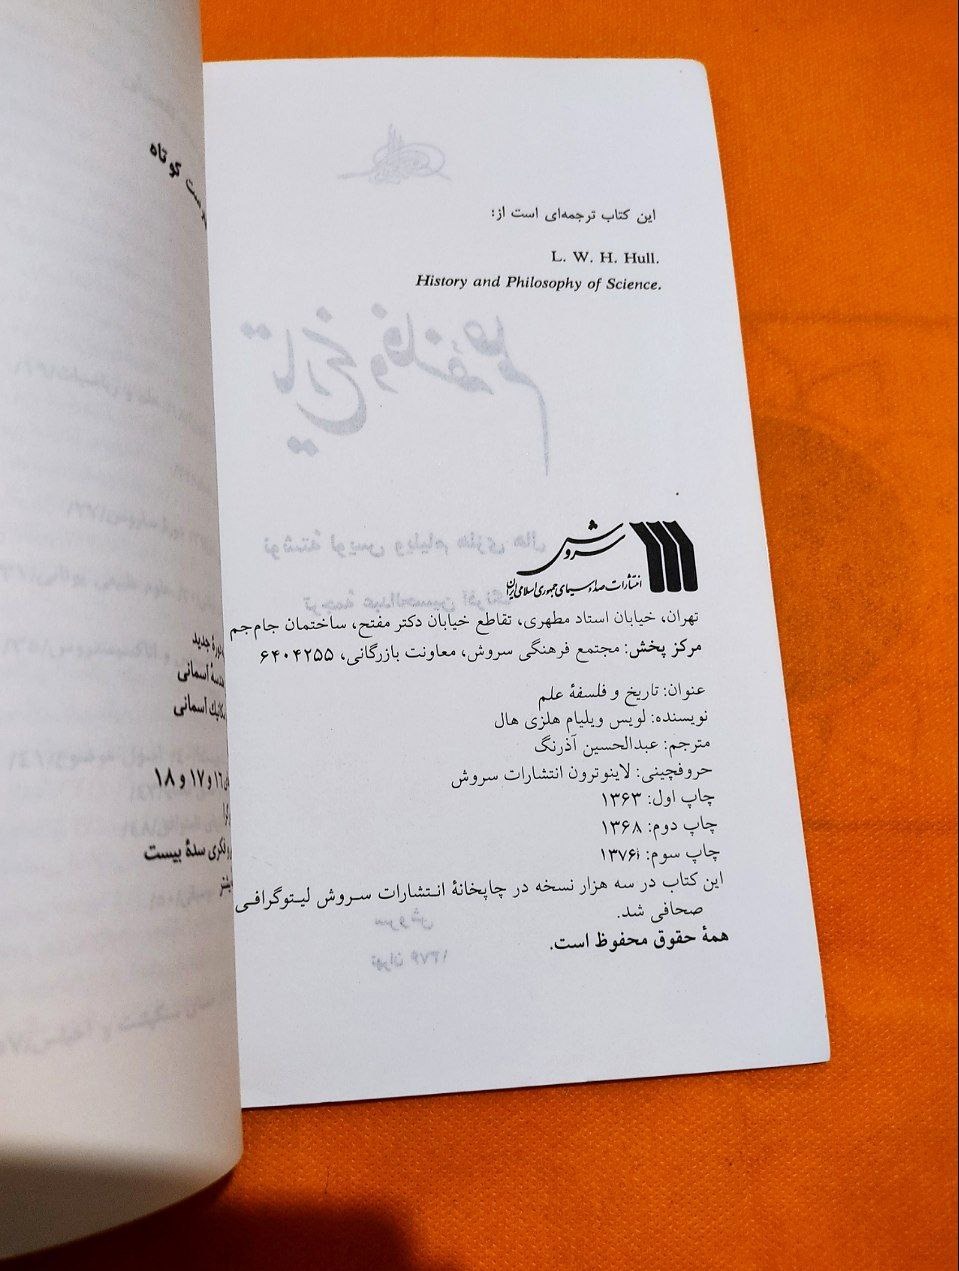 این کتاب ترجمه‌ای است از:
L. W. H. Hull.
History and Philosophy of Science.
سروش
انتشارات صدا و سیمای جمهوری اسلامی ایران
تهران، خیابان استاد مطهری، تقاطع خیابان دکتر مفتح، ساختمان جام‌جم
مرکز پخش: مجتمع فرهنگی سروش، معاونت بازرگانی، ۶۴۰۴۲۵۵
عنوان: تاریخ و فلسفهٔ علم
نویسنده: لویس ویلیام هلزی هال
مترجم: عبدالحسین آذرنگ
حروفچینی: لاینوترون انتشارات سروش
چاپ اول: ۱۳۶۳
چاپ دوم: ۱۳۶۸
چاپ سوم: ۱۳۷۶
این کتاب در سه هزار نسخه در چاپخانهٔ انتشارات سروش لیتوگرافی
صحافی شد.
همهٔ حقوق محفوظ است.
کوتاه
دورهٔ جدید
آسمانی
آسمانی
۱۷ و ۱۸
سدهٔ بیست